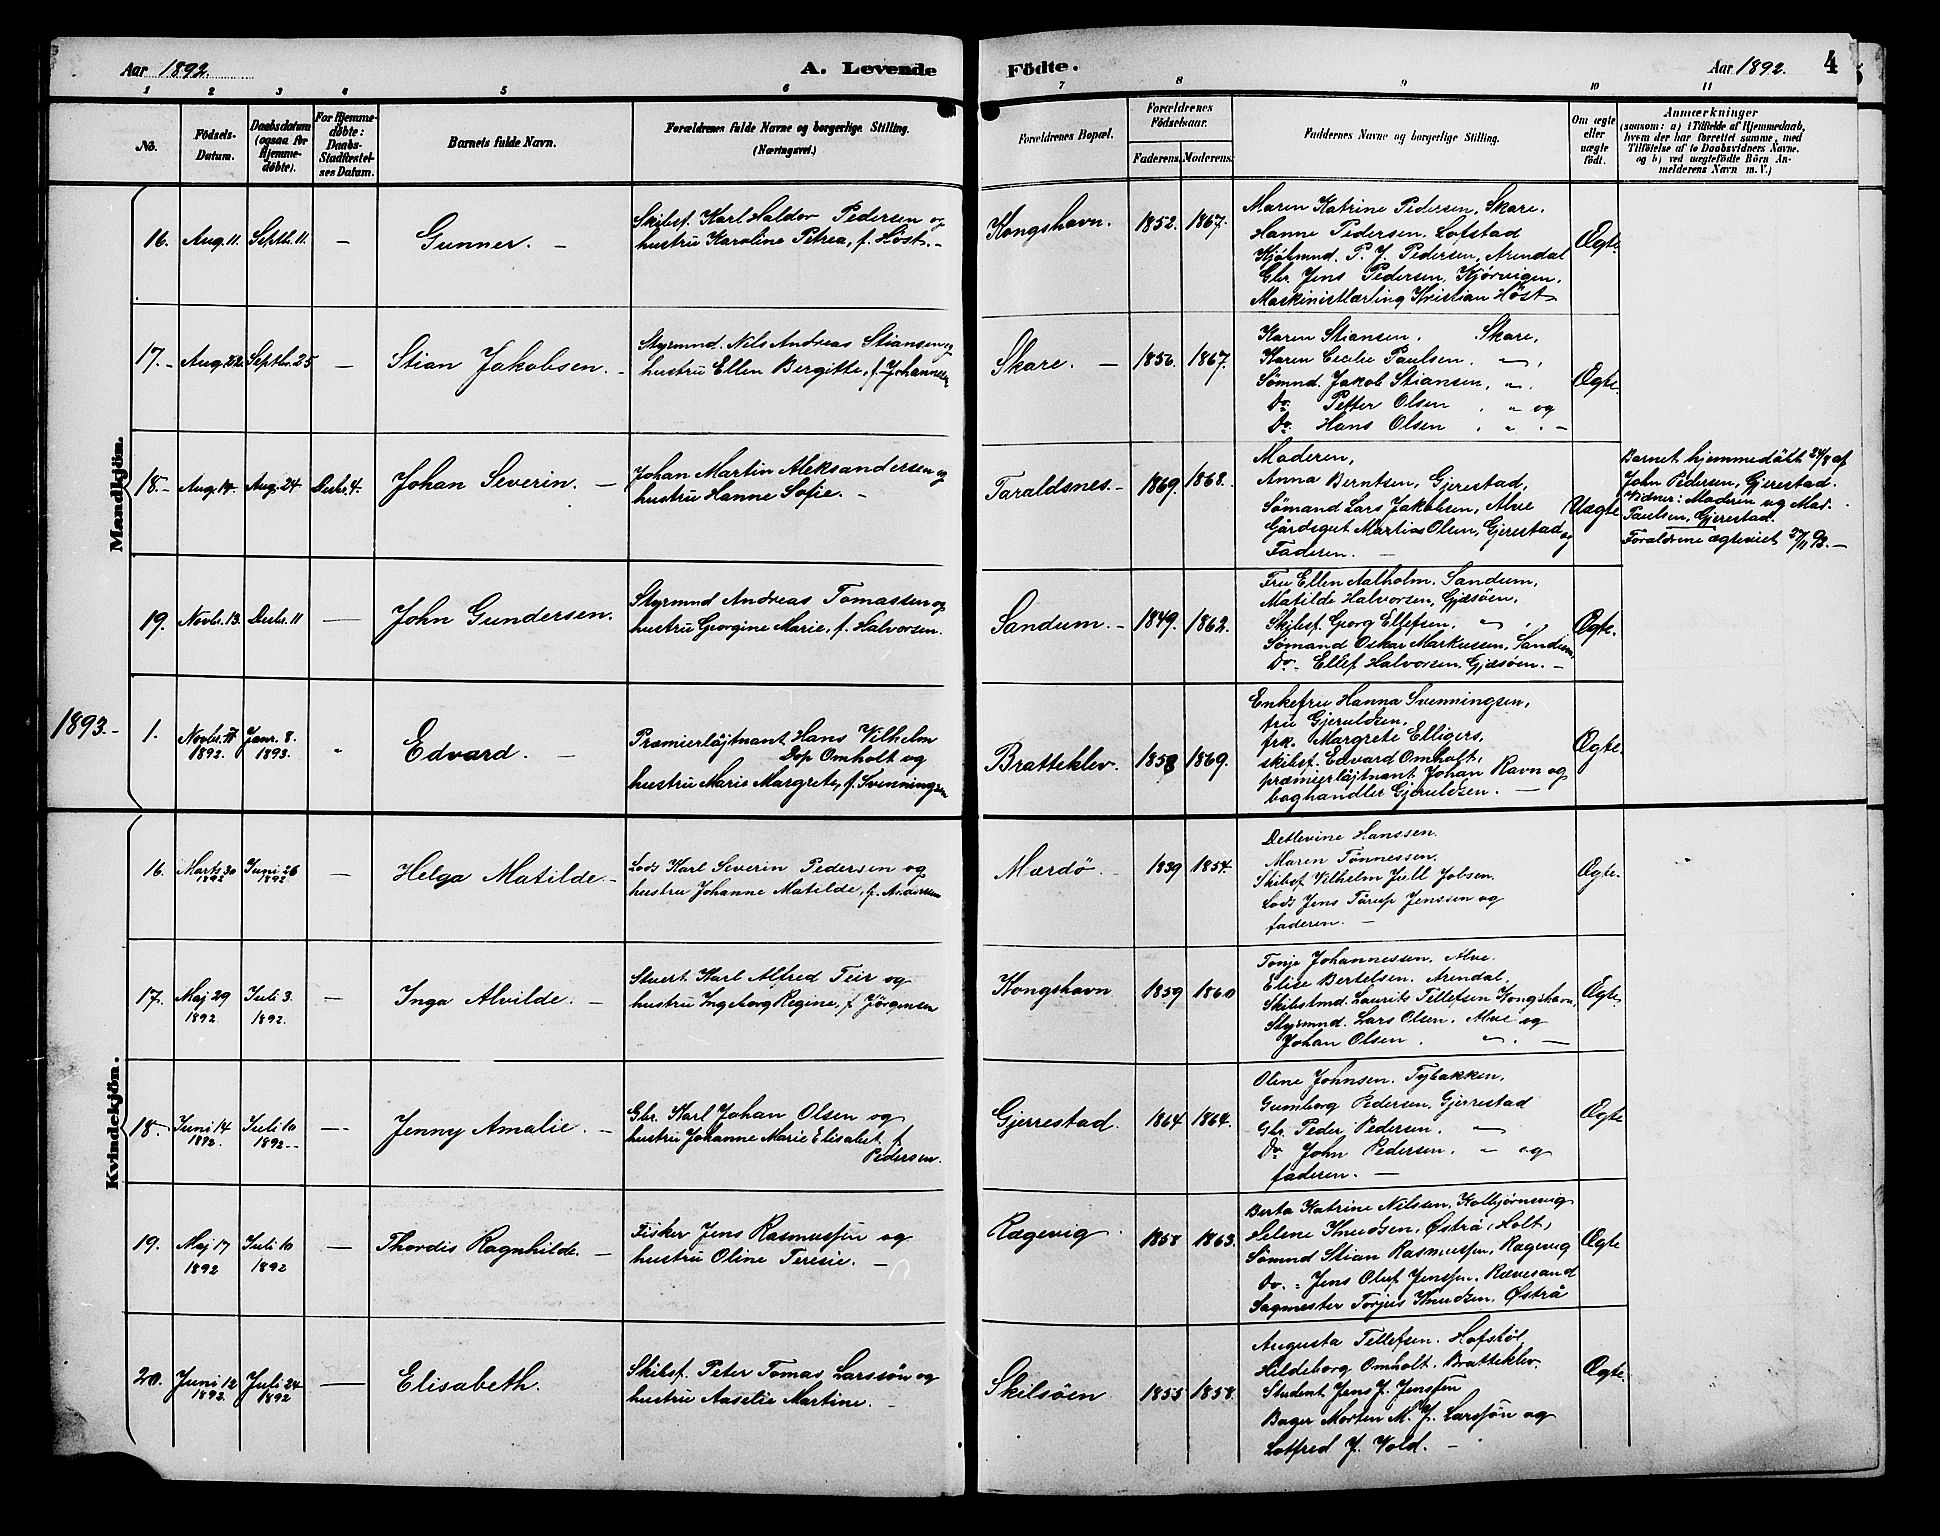 Aar 1892.
A. Levende
Födte.
Aar 1892.
4
1 2 3 4 5 6 7 8 9 10 11
No.
Födsels-
Datum.
Daabsdatum
(ogsaa for
Hjemme-
döbte).
For Hjemme-
döbte:
Daabs-
Stadfæstel-
ses Datum.
Barnets fulde Navn.
Forældrenes fulde Navne og borgerlige Stilling.
(Næringsvei.)
Forældrenes Bopæl.
Forældrenes
Födselsaar.
Faderens. Moderens.
Faddernes Navne og borgerlige Stilling.
Om ægte
eller
uægte
født.
Anmærkninger
(saasom: a) i Tilfælde af Hjemmedaab,
hvem der har forrettet samme, med
Tilföielse af to Daabsvidners Navne.
og b) ved uægtefödte Börn An-
melderens Navn m. V.)
Mandkjön.
16. Aug. 11. Septb. 11. — Gunner. —
Skibsf. Karl Haldor Pedersen og
hustru Karoline Petrea, f. Höst. –
Kongshavn. 1852. 1867.
Maren Katrine Pedersen, Skare.
Hanne Pedersen, Lofstad
Kjöbmnd. P. J. Pedersen, Arendal
Gbr. Jens Pedersen, Kjørvigen,
Maskinistlærling Kristian Höst
Ægte.
17. – Aug. 22. Septb. 25 — Stian Jakobsen. –
Styrmnd. Nils Andreas Stiansen og
hustru Ellen Bergitte, f. Johannesen
Skare. — 1856. 1867.
Karen Stiansen. Skare,
Karen Cecilie Paulsen. " ,
Sømnd. Jakob Stiansen, ".
Do. Petter Olsen . " og
Do. Hans Olsen . " . –
Ægte.
18. – Aug. 14. Aug. 24 Decbr. 4. Johan Severin. —
Johan Martin Aleksandersen og
hustru Hanne Sofie. –
Taraldsnes. – 1869. 1868.
Moderen,
Anna Berntsen, Gjerestad,
Sömand Lars Jakobsen, Alve
Gårdsgut Martin Olsen, Gjerestad og
Faderen. —
Uægte
Barnet hjemmedöbt 24/8 af
John Pedersen, Gjerestad.
Vidner: Moderen og Mad.
Paulsen, Gjerestad.
Forældrene ægteviet 27/11 92. —
19. Novbr. 13. Decbr. 11 — John Gundersen.
Styrmnd Andreas Tomassen og
hustru Georgine Marie, f. Halvorsen.
Sandum. – 1849. 1862.
Fru Ellen Aalholm, Sandum,
Matilde Halvorsen, Gjessöen,
Skibsf. Georg Ellefsen, " ,
Sömand Oskar Markussen, Sandum,
Do. Ellef Halvorsen, Gjessöen. –
Ægte.
1893. –
1. Novbr.
1892. Janr. 8.
1893. " Edvard. —
Præmierløjtnant Hans Vilhelm
Dop Omholt og
hustru Maris Margrete, f. Svenningsen
Bratteklev. 1858 1869.
Enkefru Hanna Svenningsen,
fru Gjeruldsen,
frk. Margrete Elligers,
skibsf. Edvard Omholt,
præmierløjtnant Johan Ravn og
boghandler Gjeruldsen. —
Ægte.
Kvindekjön.
16. Marts 30
1892 Juni 26
1892 — Helga Matilde. –
Lods Karl Severin Pedersen og
hustru Johanne Matilde, f. Andersen
Mærdö. 1839 1854.
Detlevine Hanssen.
Maren Tönnessen.
Skibsf. Vilhelm Juell Jobsen.
Lods Jens Tårup Jenssen og
faderen. —
Ægte.
17. Maj 29
1892 Juli 3.
1892. — Inga Alvilde. —
Stuert Karl Alfred Feir og
hustru Ingeborg Regine, f Jörgensen
Kongshavn 1859 1860
Tonje Johannessen, Alve.
Elise Bertelsen, Arendal,
Skibstmd. Laurits Tellefsen Kongshavn,
Styrmnd. Lars Olsen, Alve og
Johan Olsen . " . —
Egte.
18. Juni 14
1892. Juli 10
1892. – — Jenny Amalie. —
Gbr. Karl Johan Olsen og
hustru Johanne Marie Elisabet, f.
Pedersen.
Gjerrestad. 1864 1864.
Oline Johnsen. Tybakken,
Gumborg Pedersen, Gjerrestad
Gbr. Peder Pedersen. "
Do. John Pedersen. " og
faderen. —
Ægte
19. Maj 17
1892 Juli 10
1892 — Thordis Ragnhilde. —
Fisker Jens Rasmussen og
hustru Oline Teresie. –
Rægevig. 1858 1863.
Berta Katrine Nilsen, Kolbjörnsvig
Helene Knudsen, Østrå (Holt)
Sømnd Stian Rasmussen, Rægevig
Do. " Jens Oluf Jenssen, Rævesand
Sagmester Torjus Knudsen, Østrå
Ægte
20. Juni 12
1892. Juli 24
1892 — Elisabeth.
Skibsf. Peter Tomas Larssön og
hustru Aaselie Martine. –
Skilsöen 1855 1858.
Augusta Tellefsen. Hofstöl,
Hildeborg Omholt. Bratteklev.
Student Jens J. Jenssen
Bager Morten M. J. Larssön og
Lotfred J. Vold. –
Ægte.